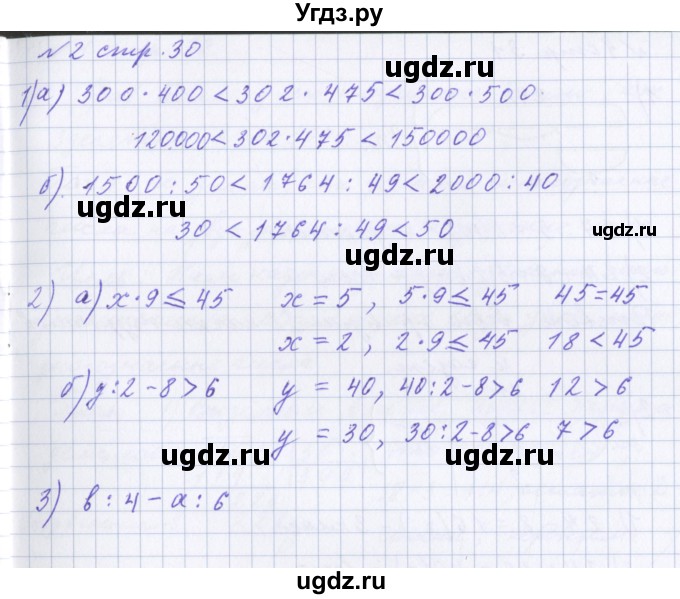 Угдз.ру
№2 стр. 30
ugdz.ru
1) а) 300 · 400 < 302 · 475 < 300 · 500
120000 < 302 · 475 < 150000
б) 1500 : 50 < 1764 : 49 < 2000 : 40
ugdz.ru
ugdz.ru
30 < 1764 : 49 < 50
ugdz.ru
2) а) x · 9 ≤ 45 x = 5, 5 · 9 ≤ 45 45 = 45
x = 2, 2 · 9 ≤ 45 18 < 45
ugdz.ru
б) y : 2 - 8 > 6 y = 40, 40 : 2 - 8 > 6 12 > 6
y = 30, 30 : 2 - 8 > 6 7 > 6
ugdz.ru
ugdz.ru
3) b : 4 - a : 6
ugdz.ru
ugdz.ru